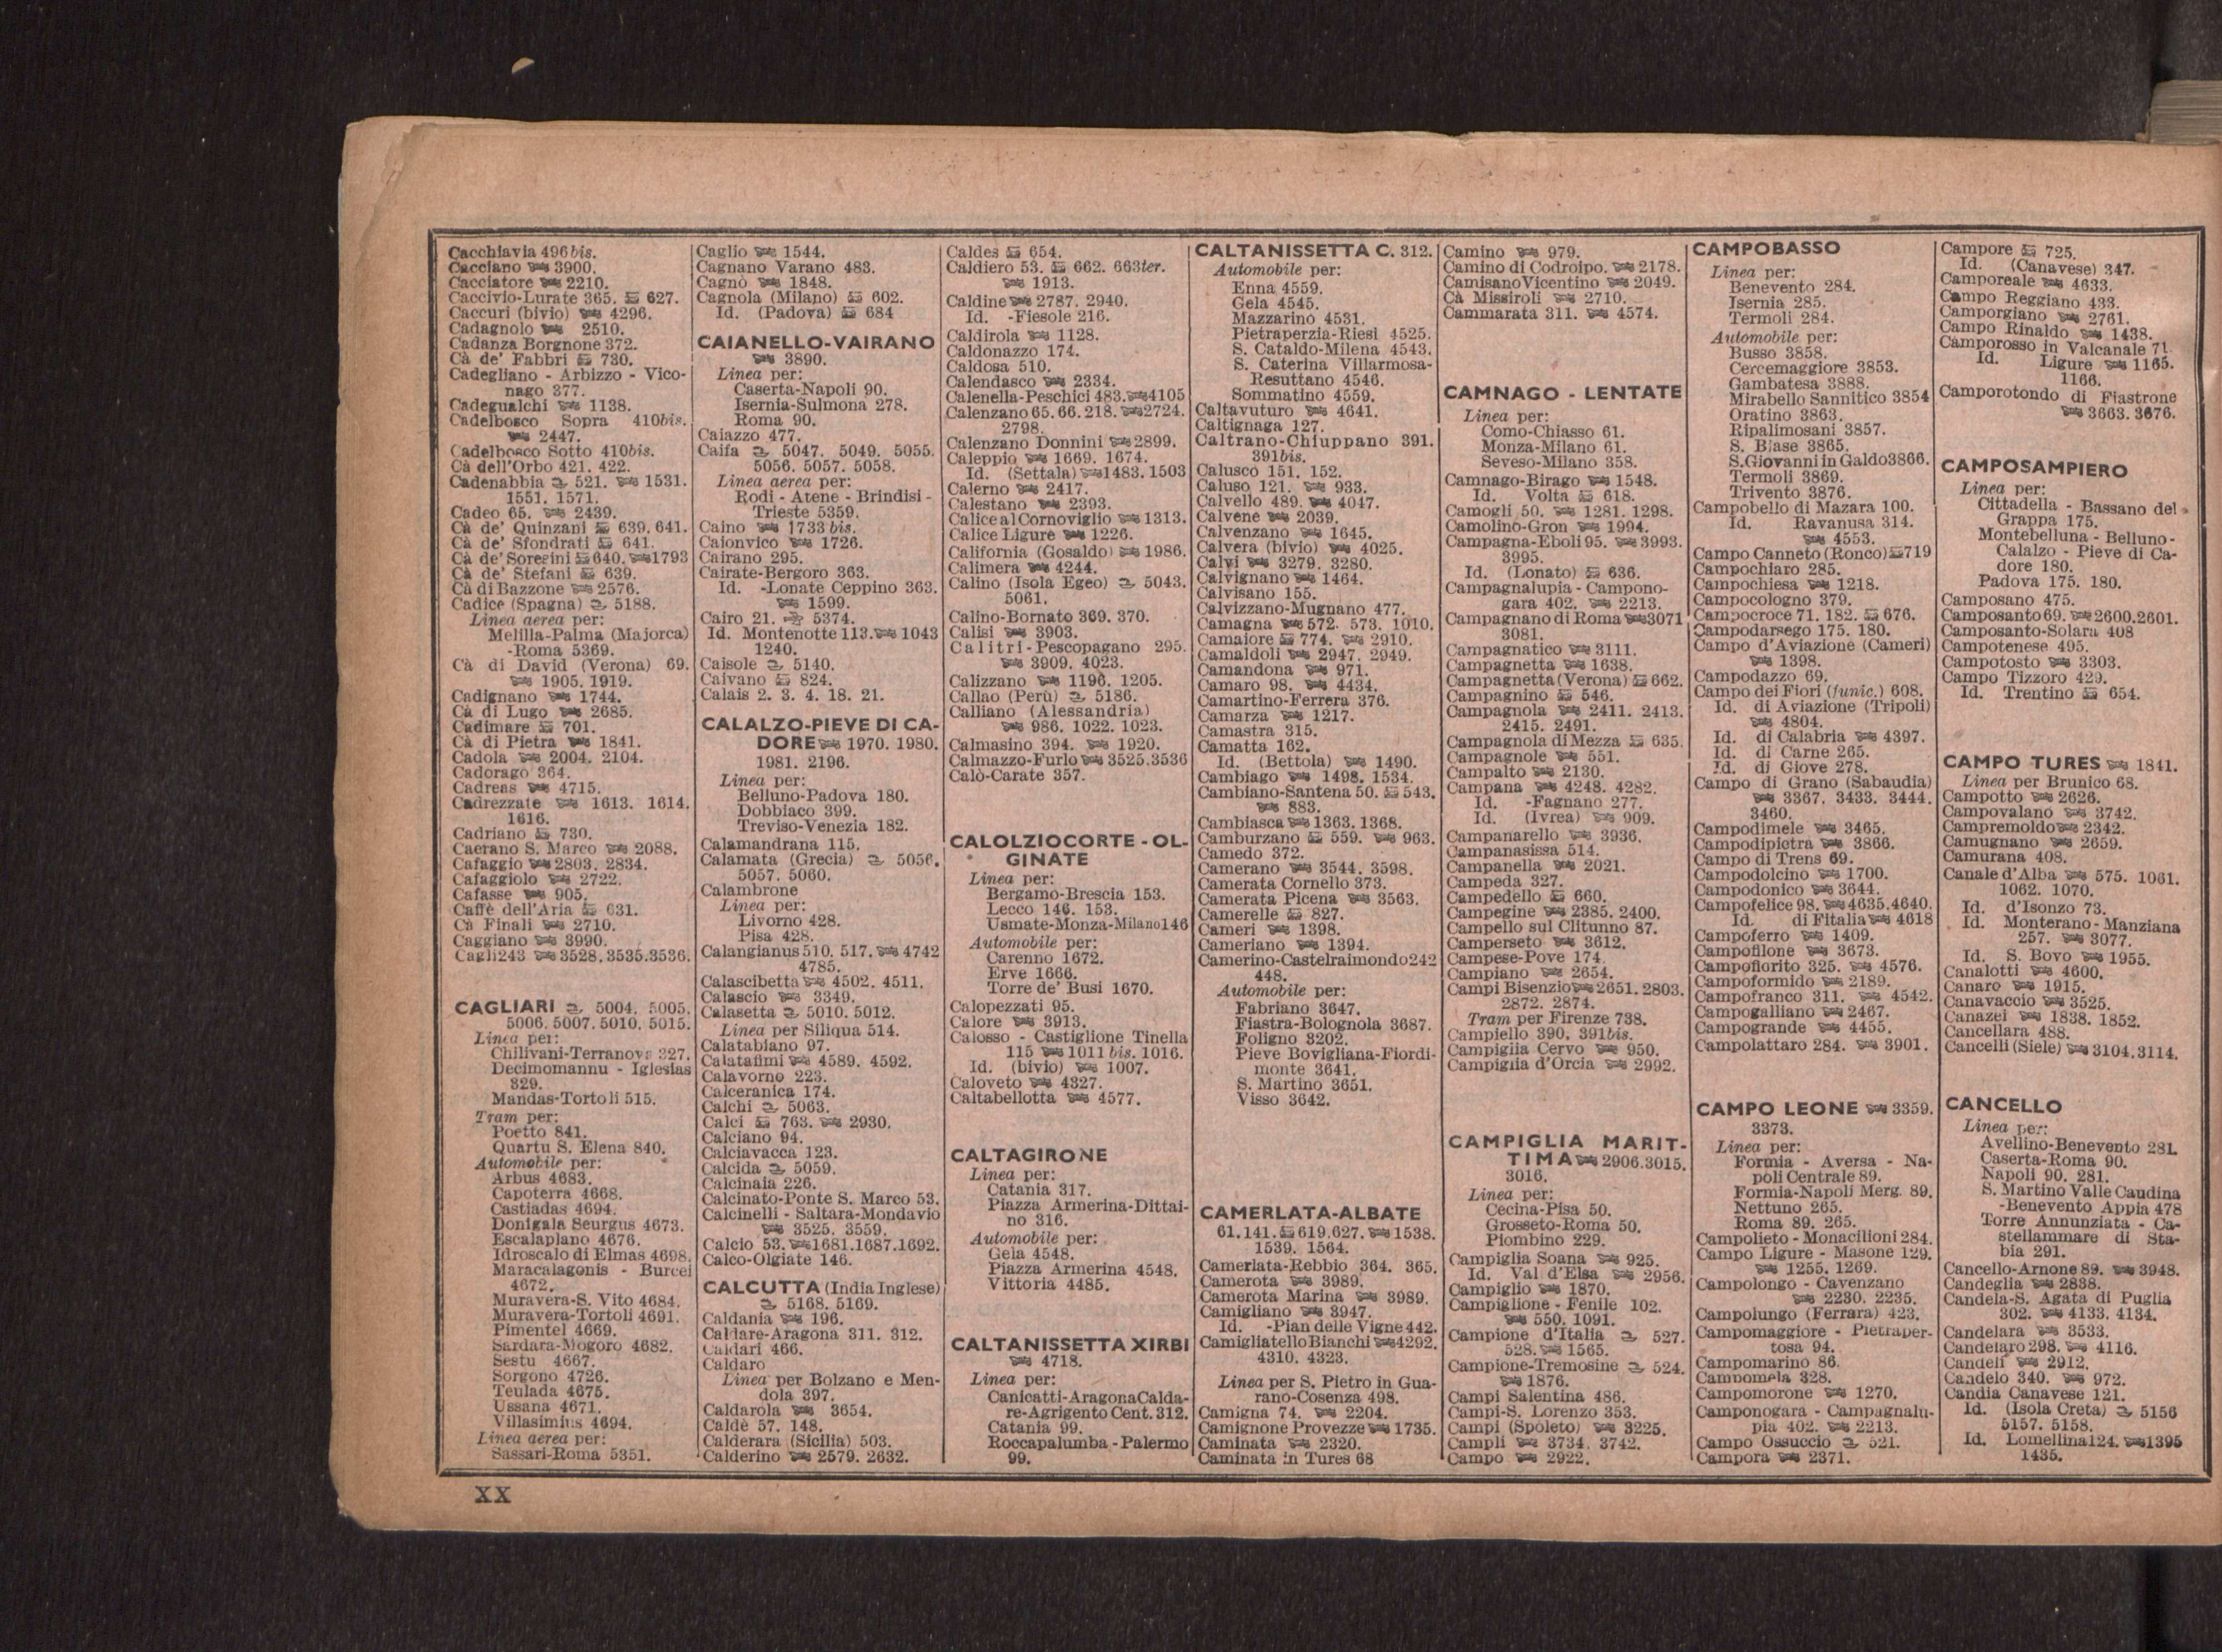 Cacchiavia 496bis.
Cacciano 3900.
Cacciatore 2210.
Caccivio-Lurate 365. 627.
Caccuri (bivio) 4296.
Cadagnolo 2510.
Cadanza Borgnone 372.
Cà de' Fabbri 730.
Cadegliano - Arbizzo - Vico-
nago 377.
Cadegualchi 1138.
Cadelbosco Sopra 410bis.
2447.
Cadelbosco Sotto 410bis.
Cà dell'Orbo 421. 422.
Cadenabbia 521. 1531.
1551. 1571.
Cadeo 65. 2439.
Cà de' Quinzani 639. 641.
Cà de' Sfondrati 641.
Cà de' Soresini 640. 1793
Cà de' Stefani 639.
Cà di Bazzone 2576.
Cadice (Spagna) 5188.
Linea aerea per:
Melilla-Palma (Majorca)
-Roma 5369.
Cà di David (Verona) 69.
1905. 1919.
Cadignano 1744.
Cà di Lugo 2685.
Cadimare 701.
Cà di Pietra 1841.
Cadola 2004. 2104.
Cadorago 364.
Cadreas 4715.
Cadrezzate 1613. 1614.
1616.
Cadriano 730.
Caerano S. Marco 2088.
Cafaggio 2803. 2834.
Cafaggiolo 2722.
Cafasse 905.
Caffè dell'Aria 631.
Cà Finali 2710.
Caggiano 3990.
Cagli 243 3528. 3535. 3536.
CAGLIARI 5004. 5005.
5006. 5007. 5010. 5015.
Linea per:
Chilivani-Terranova 327.
Decimomannu - Iglesias
329.
Mandas-Tortolì 515.
Tram per:
Poetto 841.
Quartu S. Elena 840.
Automobile per:
Arbus 4683.
Capoterra 4668.
Castiadas 4694.
Donigala Seurgus 4673.
Escalaplano 4676.
Idroscalo di Elmas 4698.
Maracalagonis - Burcei
4672.
Muravera-S. Vito 4684.
Muravera-Tortolì 4691.
Pimentel 4669.
Sardara-Mogoro 4682.
Sestu 4667.
Sorgono 4726.
Teulada 4675.
Ussana 4671.
Villasimius 4694.
Linea aerea per:
Sassari-Roma 5351.
Caglio 1544.
Cagnano Varano 483.
Cagnò 1848.
Cagnola (Milano) 602.
Id. (Padova) 684
CAIANELLO-VAIRANO
3890.
Linea per:
Caserta-Napoli 90.
Isernia-Sulmona 278.
Roma 90.
Caiazzo 477.
Caifa 5047. 5049. 5055.
5056. 5057. 5058.
Linea aerea per:
Rodi - Atene - Brindisi -
Trieste 5359.
Caino 1733 bis.
Caionvico 1726.
Cairano 295.
Cairate-Bergoro 363.
Id. -Lonate Ceppino 363.
1599.
Cairo 21. 5374.
Id. Montenotte 113. 1043
1240.
Caisole 5140.
Caivano 824.
Calais 2. 3. 4. 18. 21.
CALALZO-PIEVE DI CA-
DORE 1970. 1980.
1981. 2196.
Linea per:
Belluno-Padova 180.
Dobbiaco 399.
Treviso-Venezia 182.
Calamandrana 115.
Calamata (Grecia) 5056.
5057. 5060.
Calambrone
Linea per:
Livorno 428.
Pisa 428.
Calangianus 510. 517. 4742
4785.
Calascibetta 4502. 4511.
Calascio 3349.
Calasetta 5010. 5012.
Linea per Siliqua 514.
Calatabiano 97.
Calatafimi 4589. 4592.
Calavorno 223.
Calceranica 174.
Calchi 5063.
Calci 763. 2930.
Calciano 94.
Calciavacca 123.
Calcida 5059.
Calcinaia 226.
Calcinato-Ponte S. Marco 53.
Calcinelli - Saltara-Mondavio
3525. 3559.
Calcio 53. 1681. 1687. 1692.
Calco-Olgiate 146.
CALCUTTA (India Inglese)
5168. 5169.
Caldania 196.
Caldare-Aragona 311. 312.
Caldari 466.
Caldaro
Linea per Bolzano e Men-
dola 397.
Caldarola 3654.
Caldè 57. 148.
Calderara (Sicilia) 503.
Calderino 2579. 2632.
Caldes 654.
Caldiero 53. 662. 663ter.
1913.
Caldine 2787. 2940.
Id. -Fiesole 216.
Caldirola 1128.
Caldonazzo 174.
Caldosa 510.
Calendasco 2334.
Calenella-Peschici 483. 4105
Calenzano 65. 66. 218. 2724.
2798.
Calenzano Donnini 2899.
Caleppio 1669. 1674.
Id. (Settala) 1483. 1503
Calerno 2417.
Calestano 2393.
Calice al Cornoviglio 1313.
Calice Ligure 1226.
California (Gosaldo) 1986.
Calimera 4244.
Calino (Isola Egeo) 5043.
5061.
Calino-Bornato 369. 370.
Calisi 3903.
Calitri-Pescopagano 295.
3909. 4023.
Calizzano 1196. 1205.
Callao (Perù) 5186.
Calliano (Alessandria)
986. 1022. 1023.
Calmasino 394. 1920.
Calmazzo-Furlo 3525. 3536
Calò-Carate 357.
CALOLZIOCORTE - OL-
GINATE
Linea per:
Bergamo-Brescia 153.
Lecco 146. 153.
Usmate-Monza-Milano 146
Automobile per:
Carenno 1672.
Erve 1666.
Torre de' Busi 1670.
Calopezzati 95.
Calore 3913.
Calosso - Castiglione Tinella
115 1011 bis. 1016.
Id. (bivio) 1007.
Caloveto 4327.
Caltabellotta 4577.
CALTAGIRONE
Linea per:
Catania 317.
Piazza Armerina-Dittai-
no 316.
Automobile per:
Gela 4548.
Piazza Armerina 4548.
Vittoria 4485.
CALTANISSETTA XIRBI
4718.
Linea per:
Canicattì-Aragona Calda-
re-Agrigento Cent. 312.
Catania 99.
Roccapalumba - Palermo
99.
CALTANISSETTA C. 312.
Automobile per:
Enna 4559.
Gela 4545.
Mazzarino 4531.
Pietraperzia-Riesi 4525.
S. Cataldo-Milena 4543.
S. Caterina Villarmosa-
Resuttano 4546.
Sommatino 4559.
Caltavuturo 4641.
Caltignaga 127.
Caltrano-Chiuppano 391.
391bis.
Calusco 151. 152.
Caluso 121. 933.
Calvello 489. 4047.
Calvene 2039.
Calvenzano 1645.
Calvera (bivio) 4025.
Calvi 3279. 3280.
Calvignano 1464.
Calvisano 155.
Calvizzano-Mugnano 477.
Camagna 572. 573. 1010.
Camaiore 774. 2910.
Camaldoli 2947. 2949.
Camandona 971.
Camaro 98. 4434.
Camartino-Ferrera 376.
Camarza 1217.
Camastra 315.
Camatta 162.
Id. (Bettola) 1490.
Cambiago 1498. 1534.
Cambiano-Santena 50. 543.
883.
Cambiasca 1363. 1368.
Camburzano 559. 963.
Camedo 372.
Camerano 3544. 3598.
Camerata Cornello 373.
Camerata Picena 3563.
Camerelle 827.
Cameri 1398.
Cameriano 1394.
Camerino-Castelraimondo 242
448.
Automobile per:
Fabriano 3647.
Fiastra-Bolognola 3687.
Foligno 3202.
Pieve Bovigliana-Fiordi-
monte 3641.
S. Martino 3651.
Visso 3642.
CAMERLATA-ALBATE
61. 141. 619. 627. 1538.
1539. 1564.
Camerlata-Rebbio 364. 365.
Camerota 3989.
Camerota Marina 3989.
Camigliano 3947.
Id. -Pian delle Vigne 442.
Camigliatello Bianchi 4292.
4310. 4323.
Linea per S. Pietro in Gua-
rano-Cosenza 498.
Camigna 74. 2204.
Camignone Provezze 1735.
Caminata 2320.
Caminata in Tures 68
Camino 979.
Camino di Codroipo. 2178.
Camisano Vicentino 2049.
Cà Missiroli 2710.
Cammarata 311. 4574.
CAMNAGO - LENTATE
Linea per:
Como-Chiasso 61.
Monza-Milano 61.
Seveso-Milano 358.
Camnago-Birago 1548.
Id. Volta 618.
Camogli 50. 1281. 1298.
Camolino-Gron 1994.
Campagna-Eboli 95. 3993.
3995.
Id. (Lonato) 636.
Campagnalupia - Campono-
gara 402. 2213.
Campagnano di Roma 3071
3081.
Campagnatico 3111.
Campagnetta 1638.
Campagnetta (Verona) 662.
Campagnino 546.
Campagnola 2411. 2413.
2415. 2491.
Campagnola di Mezza 635.
Campagnole 551.
Campalto 2130.
Campana 4248. 4282.
Id. -Fagnano 277.
Id. (Ivrea) 909.
Campanarello 3936.
Campanasissa 514.
Campanella 2021.
Campeda 327.
Campedello 660.
Campegine 2385. 2400.
Campello sul Clitunno 87.
Camperseto 3612.
Campese-Pove 174.
Campiano 2654.
Campi Bisenzio 2651. 2803.
2872. 2874.
Tram per Firenze 738.
Campiello 390. 391bis.
Campiglia Cervo 950.
Campiglia d'Orcia 2992.
CAMPIGLIA MARIT-
TIMA 2906. 3015.
3016.
Linea per:
Cecina-Pisa 50.
Grosseto-Roma 50.
Piombino 229.
Campiglia Soana 925.
Id. Val d'Elsa 2956.
Campiglio 1870.
Campiglione - Fenile 102.
550. 1091.
Campione d'Italia 527.
528. 1565.
Campione-Tremosine 524.
1876.
Campi Salentina 486.
Campi-S. Lorenzo 353.
Campi (Spoleto) 3225.
Campli 3734. 3742.
Campo 2922.
CAMPOBASSO
Linea per:
Benevento 284.
Isernia 285.
Termoli 284.
Automobile per:
Busso 3858.
Cercemaggiore 3853.
Gambatesa 3888.
Mirabello Sannitico 3854
Oratino 3863.
Ripalimosani 3857.
S. Biase 3865.
S. Giovanni in Galdo 3866.
Termoli 3869.
Trivento 3876.
Campobello di Mazara 100.
Id. Ravanusa 314.
4553.
Campo Canneto (Ronco) 719
Campochiaro 285.
Campochiesa 1218.
Campocologno 379.
Campocroce 71. 182. 676.
Campodarsego 175. 180.
Campo d'Aviazione (Cameri)
1398.
Campodazzo 69.
Campo dei Fiori (funic.) 608.
Id. di Aviazione (Tripoli)
4804.
Id. di Calabria 4397.
Id. di Carne 265.
Id. di Giove 278.
Campo di Grano (Sabaudia)
3367. 3433. 3444.
3460.
Campodimele 3465.
Campodipietra 3866.
Campo di Trens 69.
Campodolcino 1700.
Campodonico 3644.
Campofelice 98. 4635. 4640.
Id. di Fitalia 4618
Campoferro 1409.
Campofilone 3673.
Campofiorito 325. 4576.
Campoformido 2189.
Campofranco 311. 4542.
Campogalliano 2467.
Campogrande 4455.
Campolattaro 284. 3901.
CAMPO LEONE 3359.
3373.
Linea per:
Formia - Aversa - Na-
poli Centrale 89.
Formia-Napoli Merg. 89.
Nettuno 265.
Roma 89. 265.
Campolieto - Monacilioni 284.
Campo Ligure - Masone 129.
1255. 1269.
Campolongo - Cavenzano
2230. 2235.
Campolungo (Ferrara) 423.
Campomaggiore - Pietraper-
tosa 94.
Campomarino 86.
Campomela 328.
Campomorone 1270.
Camponogara - Campagnalu-
pia 402. 2213.
Campo Ossuccio 521.
Campora 2371.
Campore 725.
Id. (Canavese) 347.
Camporeale 4633.
Campo Reggiano 433.
Camporgiano 2761.
Campo Rinaldo 1438.
Camporosso in Valcanale 71.
Id. Ligure 1165.
1166.
Camporotondo di Fiastrone
3663. 3676.
CAMPOSAMPIERO
Linea per:
Cittadella - Bassano del
Grappa 175.
Montebelluna - Belluno -
Calalzo - Pieve di Ca-
dore 180.
Padova 175. 180.
Camposano 475.
Camposanto 69. 2600. 2601.
Camposanto-Solara 408
Campotenese 495.
Campotosto 3303.
Campo Tizzoro 429.
Id. Trentino 654.
CAMPO TURES 1841.
Linea per Brunico 68.
Campotto 2626.
Campovalano 3742.
Campremoldo 2342.
Camugnano 2659.
Camurana 408.
Canale d'Alba 575. 1061.
1062. 1070.
Id. d'Isonzo 73.
Id. Monterano - Manziana
257. 3077.
Id. S. Bovo 1955.
Canalotti 4600.
Canaro 1915.
Canavaccio 3525.
Canazei 1838. 1852.
Cancellara 488.
Cancelli (Siele) 3104. 3114.
CANCELLO
Linea per:
Avellino-Benevento 281.
Caserta-Roma 90.
Napoli 90. 281.
S. Martino Valle Caudina
-Benevento Appia 478
Torre Annunziata - Ca-
stellammare di Sta-
bia 291.
Cancello-Arnone 89. 3948.
Candeglia 2838.
Candela-S. Agata di Puglia
302. 4133. 4134.
Candelara 3533.
Candelaro 298. 4116.
Candeli 2912.
Candelo 340. 972.
Candia Canavese 121.
Id. (Isola Creta) 5156
5157. 5158.
Id. Lomellina 124. 1395
1435.
XX